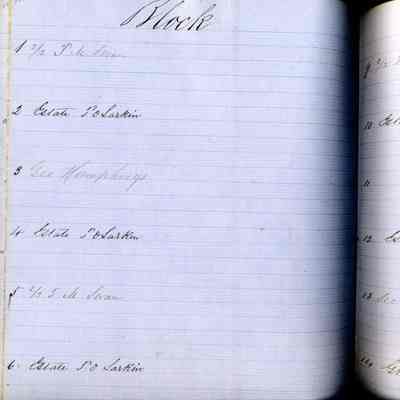 Block
1 1/2 T M Swan
2 Estate T O Larkin
3 Geo Humphreys
4 Estate T O Larkin
5 1/2 T M Swan
6 Estate T O Larkin
9 1/2
10 Est
11
12 Es
13 Geo
14